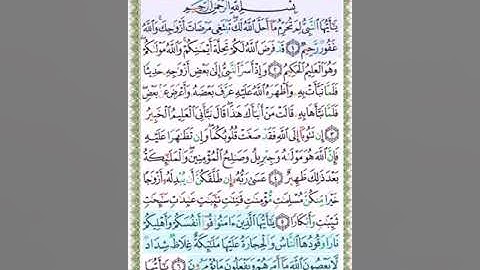 بِسْمِ ٱللَّهِ ٱلرَّحْمَٰنِ ٱلرَّحِيمِ
يَٰٓأَيُّهَا ٱلنَّبِىُّ لِمَ تُحَرِّمُ مَآ أَحَلَّ ٱللَّهُ لَكَ تَبْتَغِى مَرْضَاتَ أَزْوَٰجِكَ وَٱللَّهُ
غَفُورٌ رَّحِيمٌ ١ قَدْ فَرَضَ ٱللَّهُ لَكُمْ تَحِلَّةَ أَيْمَٰنِكُمْ وَٱللَّهُ مَوْلَىٰكُمْ
وَهُوَ ٱلْعَلِيمُ ٱلْحَكِيمُ ٢ وَإِذْ أَسَرَّ ٱلنَّبِىُّ إِلَىٰ بَعْضِ أَزْوَٰجِهِۦ حَدِيثًا
فَلَمَّا نَبَّأَتْ بِهِۦ وَأَظْهَرَهُ ٱللَّهُ عَلَيْهِ عَرَّفَ بَعْضَهُۥ وَأَعْرَضَ عَنۢ بَعْضٍ
فَلَمَّا نَبَّأَهَا بِهِۦ قَالَتْ مَنْ أَنۢبَأَكَ هَٰذَا قَالَ نَبَّأَنِىَ ٱلْعَلِيمُ ٱلْخَبِيرُ
٣ إِن تَتُوبَآ إِلَى ٱللَّهِ فَقَدْ صَغَتْ قُلُوبُكُمَا وَإِن تَظَٰهَرَا عَلَيْهِ
فَإِنَّ ٱللَّهَ هُوَ مَوْلَىٰهُ وَجِبْرِيلُ وَصَٰلِحُ ٱلْمُؤْمِنِينَ وَٱلْمَلَٰٓئِكَةُ
بَعْدَ ذَٰلِكَ ظَهِيرٌ ٤ عَسَىٰ رَبُّهُۥٓ إِن طَلَّقَكُنَّ أَن يُبْدِلَهُۥٓ أَزْوَٰجًا
خَيْرًا مِّنكُنَّ مُسْلِمَٰتٍ مُّؤْمِنَٰتٍ قَٰنِتَٰتٍ تَٰٓئِبَٰتٍ عَٰبِدَٰتٍ سَٰٓئِحَٰتٍ
ثَيِّبَٰتٍ وَأَبْكَارًا ٥ يَٰٓأَيُّهَا ٱلَّذِينَ ءَامَنُوا۟ قُوٓا۟ أَنفُسَكُمْ وَأَهْلِيكُمْ
نَارًا وَقُودُهَا ٱلنَّاسُ وَٱلْحِجَارَةُ عَلَيْهَا مَلَٰٓئِكَةٌ غِلَاظٌ شِدَادٌ
لَّا يَعْصُونَ ٱللَّهَ مَآ أَمَرَهُمْ وَيَفْعَلُونَ مَا يُؤْمَرُونَ ٦ يَٰٓأَيُّهَا